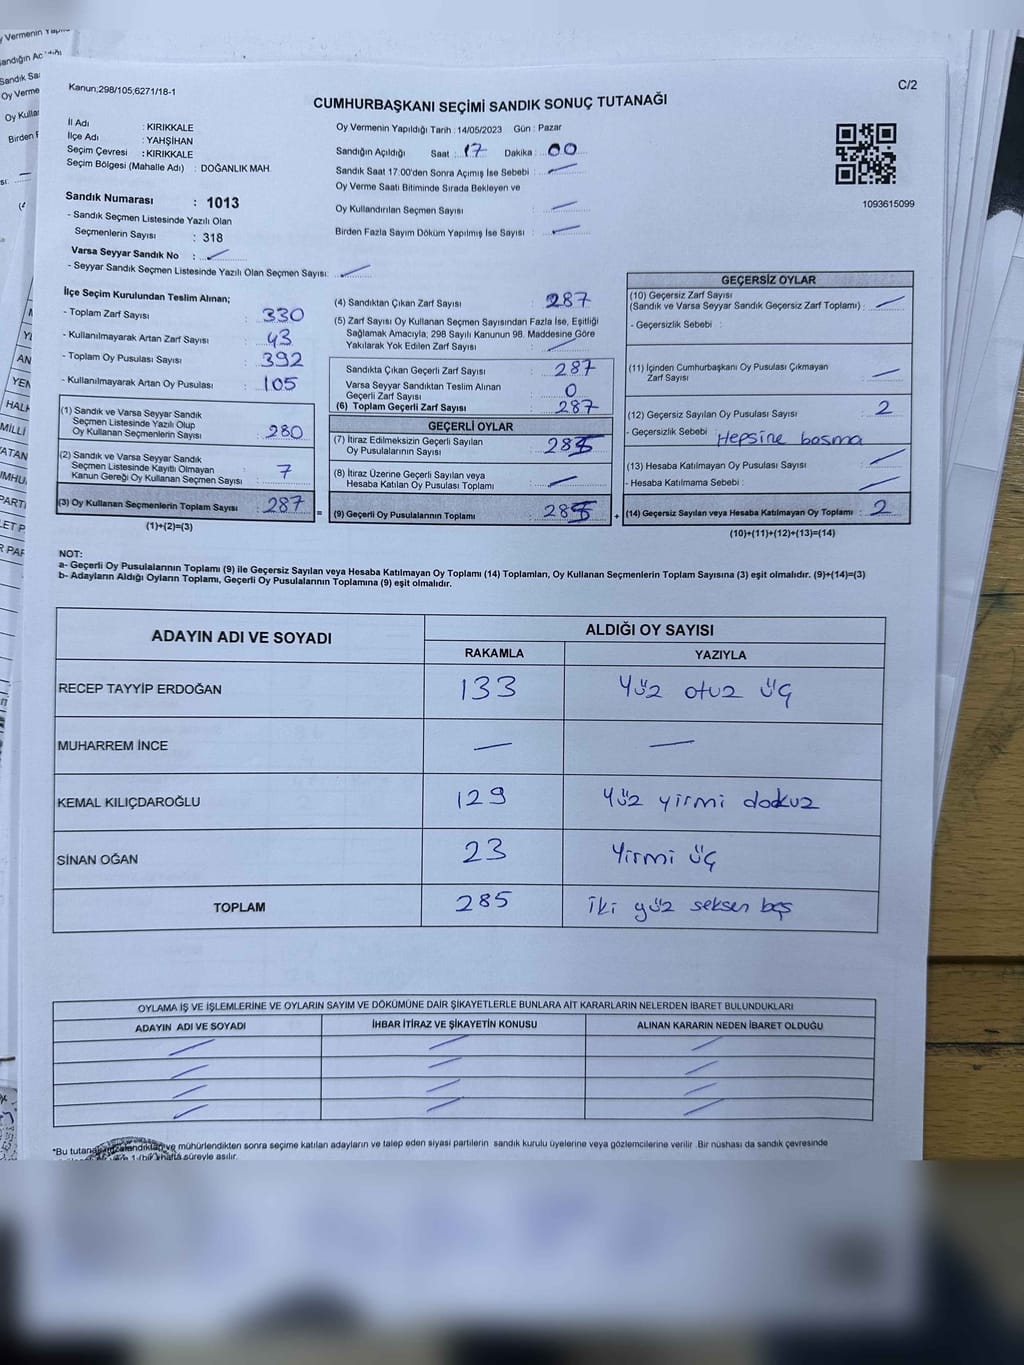 Kanun;298/105;6271/18-1
C/2
CUMHURBAŞKANI SEÇİMİ SANDIK SONUÇ TUTANAĞI
İl Adı : KIRIKKALE
İlçe Adı : YAHŞİHAN
Seçim Çevresi : KIRIKKALE
Seçim Bölgesi (Mahalle Adı) : DOĞANLIK MAH.
Oy Vermenin Yapıldığı Tarih : 14/05/2023 Gün : Pazar
Sandığın Açıldığı Saat : 17 Dakika : 00
Sandık Saat 17:00'den Sonra Açımış İse Sebebi : —
Oy Verme Saati Bitiminde Sırada Bekleyen ve
Oy Kullandırılan Seçmen Sayısı : —
Birden Fazla Sayım Döküm Yapılmış İse Sayısı : —
1093615099
Sandık Numarası : 1013
- Sandık Seçmen Listesinde Yazılı Olan
Seçmenlerin Sayısı : 318
Varsa Seyyar Sandık No : —
- Seyyar Sandık Seçmen Listesinde Yazılı Olan Seçmen Sayısı: —
İlçe Seçim Kurulundan Teslim Alınan;
- Toplam Zarf Sayısı : 330
- Kullanılmayarak Artan Zarf Sayısı : 43
- Toplam Oy Pusulası Sayısı : 392
- Kullanılmayarak Artan Oy Pusulası : 105
(1) Sandık ve Varsa Seyyar Sandık
Seçmen Listesinde Yazılı Olup
Oy Kullanan Seçmenlerin Sayısı : 280
(2) Sandık ve Varsa Seyyar Sandık
Seçmen Listesinde Kayıtlı Olmayan
Kanun Gereği Oy Kullanan Seçmen Sayısı : 7
(3) Oy Kullanan Seçmenlerin Toplam Sayısı : 287
(1)+(2)=(3)
(4) Sandıktan Çıkan Zarf Sayısı : 287
(5) Zarf Sayısı Oy Kullanan Seçmen Sayısından Fazla İse, Eşitliği
Sağlamak Amacıyla, 298 Sayılı Kanunun 98. Maddesine Göre
Yakılarak Yok Edilen Zarf Sayısı : —
Sandıkta Çıkan Geçerli Zarf Sayısı : 287
Varsa Seyyar Sandıktan Teslim Alınan
Geçerli Zarf Sayısı : 0
(6) Toplam Geçerli Zarf Sayısı : 287
GEÇERLİ OYLAR
(7) İtiraz Edilmeksizin Geçerli Sayılan
Oy Pusulalarının Sayısı : 285
(8) İtiraz Üzerine Geçerli Sayılan veya
Hesaba Katılan Oy Pusulası Toplamı : —
= (9) Geçerli Oy Pusulalarının Toplamı : 285 +
GEÇERSİZ OYLAR
(10) Geçersiz Zarf Sayısı
(Sandık ve Varsa Seyyar Sandık Geçersiz Zarf Toplamı) : —
- Geçersizlik Sebebi :
(11) İçinden Cumhurbaşkanı Oy Pusulası Çıkmayan
Zarf Sayısı : —
(12) Geçersiz Sayılan Oy Pusulası Sayısı : 2
- Geçersizlik Sebebi : Hepsine basma
(13) Hesaba Katılmayan Oy Pusulası Sayısı : —
- Hesaba Katılmama Sebebi : —
(14) Geçersiz Sayılan veya Hesaba Katılmayan Oy Toplamı : 2
(10)+(11)+(12)+(13)=(14)
NOT:
a- Geçerli Oy Pusulalarının Toplamı (9) ile Geçersiz Sayılan veya Hesaba Katılmayan Oy Toplamı (14) Toplamları, Oy Kullanan Seçmenlerin Toplam Sayısına (3) eşit olmalıdır. (9)+(14)=(3)
b- Adayların Aldığı Oyların Toplamı, Geçerli Oy Pusulalarının Toplamına (9) eşit olmalıdır.
ADAYIN ADI VE SOYADI
ALDIĞI OY SAYISI
RAKAMLA YAZIYLA
RECEP TAYYİP ERDOĞAN 133 Yüz otuz üç
MUHARREM İNCE — —
KEMAL KILIÇDAROĞLU 129 Yüz yirmi dokuz
SİNAN OĞAN 23 Yirmi üç
TOPLAM 285 İki yüz seksen beş
OYLAMA İŞ VE İŞLEMLERİNE VE OYLARIN SAYIM VE DÖKÜMÜNE DAİR ŞİKAYETLERLE BUNLARA AİT KARARLARIN NELERDEN İBARET BULUNDUKLARI
ADAYIN ADI VE SOYADI İHBAR İTİRAZ VE ŞİKAYETİN KONUSU ALINAN KARARIN NEDEN İBARET OLDUĞU
*Bu tutanak ve mühürlendikten sonra seçime katılan adayların ve talep eden siyasi partilerin sandık kurulu üyelerine veya gözlemcilerine verilir .Bir nüshası da sandık çevresinde
1 (bir) hafta süreyle asılır.